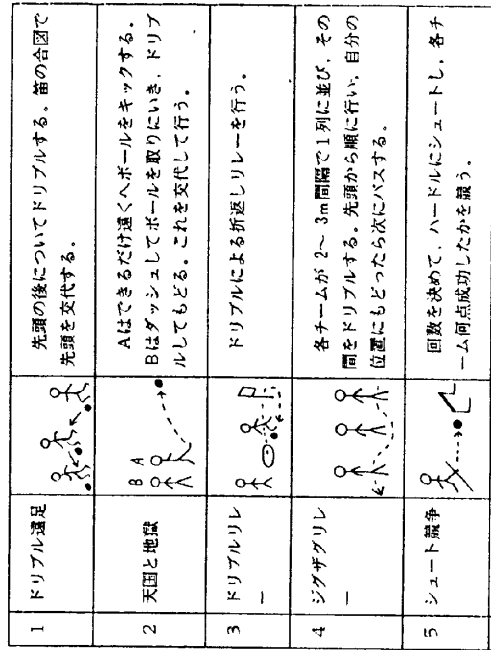 1
ドリブル遠足
先頭の後についてドリブルする。笛の合図で
先頭を交代する。
2
天国と地獄
B A
Aはできるだけ遠くへボールをキックする。
Bはダッシュしてボールを取りにいき、ドリブ
ルしてもどる。これを交代して行う。
3
ドリブルリレ
ー
ドリブルによる折返しリレーを行う。
4
ジグザグリレ
ー
各チームが2〜3m間隔で1列に並び、その
間をドリブルする。先頭から順に行い、自分の
位置にもどったら次にパスする。
5
シュート競争
回数を決めて、ハードルにシュートし、各チ
ーム何点成功したかを競う。